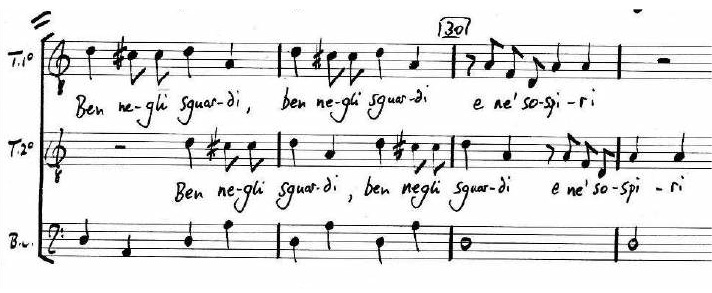 30
T.1º
Ben ne-gli sguar-di, ben ne-gli sguar-di e ne' so-spi-ri
T.2º
Ben ne-gli sguar-di, ben negli sguar-di e ne' so-spi-ri
B.c.